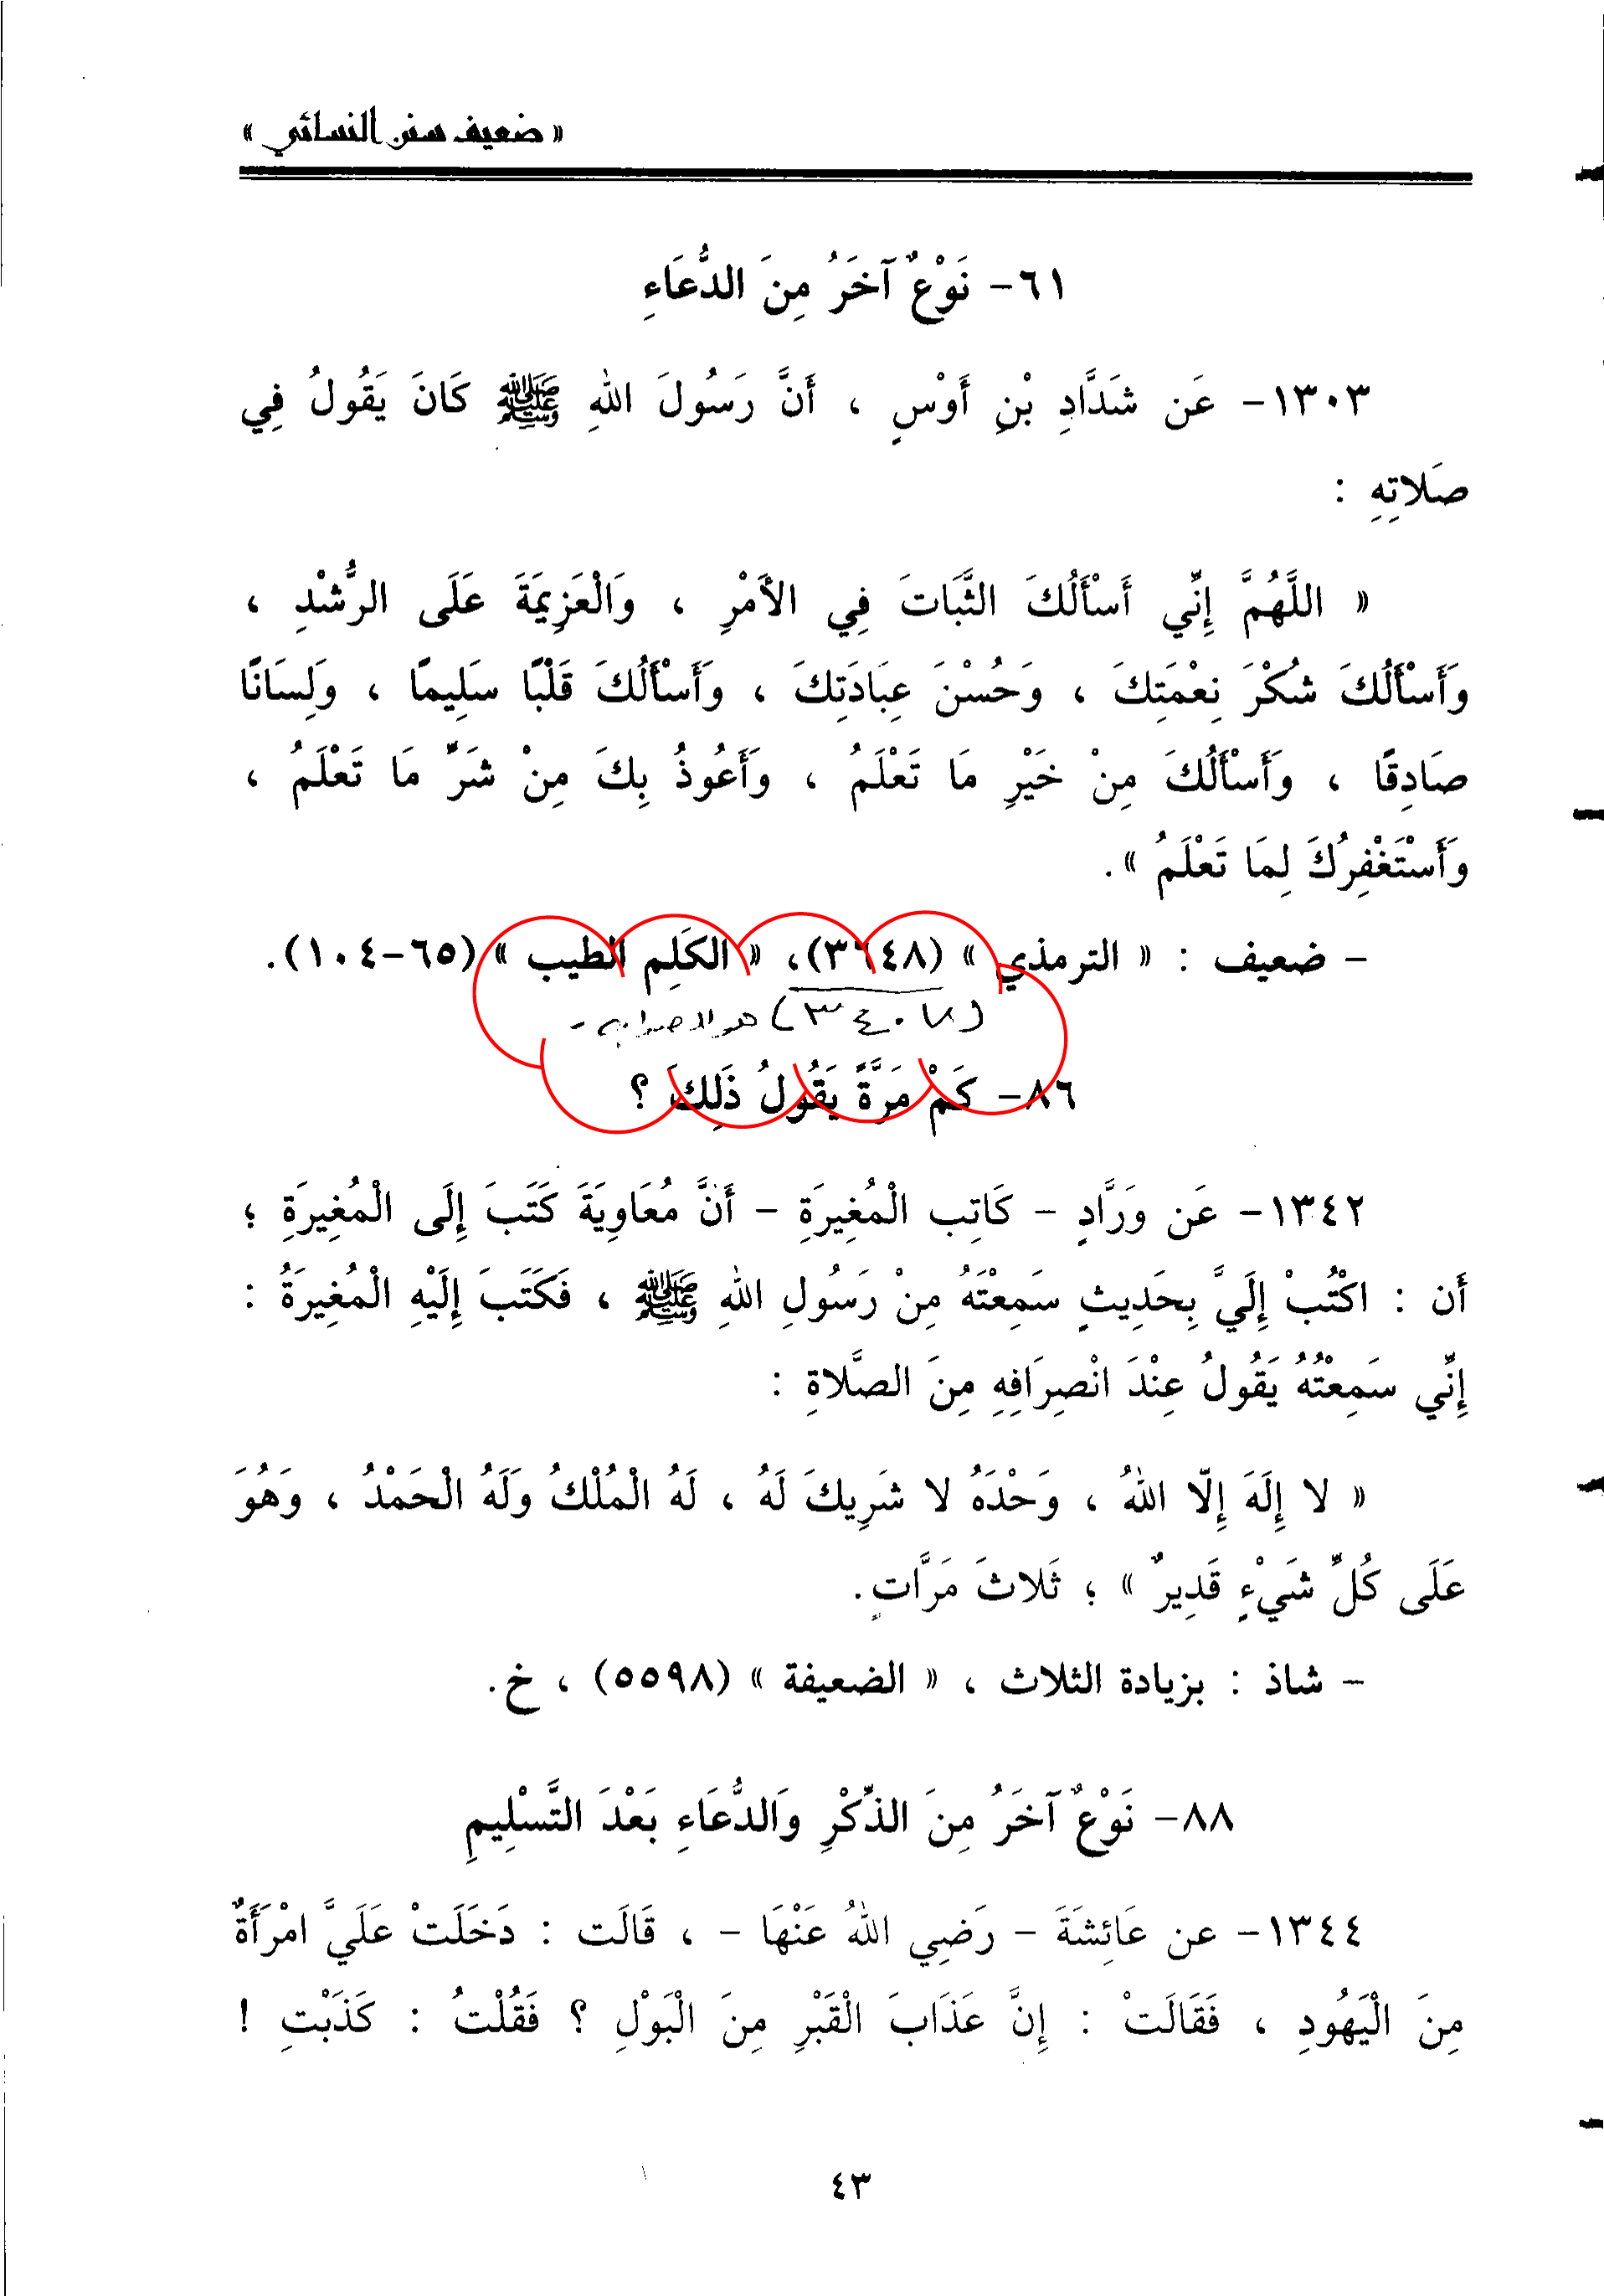 « ضعيف سنن النسائي »
٦١- نَوْعٌ آخَرُ مِنَ الدُّعَاءِ
١٣٠٣- عَن شَدَّادِ بْنِ أَوْسٍ ، أَنَّ رَسُولَ اللهِ ﷺ كَانَ يَقُولُ فِي
صَلاتِهِ :
« اللَّهُمَّ إِنِّي أَسْأَلُكَ الثَّبَاتَ فِي الأَمْرِ ، وَالْعَزِيمَةَ عَلَى الرُّشْدِ ،
وَأَسْأَلُكَ شُكْرَ نِعْمَتِكَ ، وَحُسْنَ عِبَادَتِكَ ، وَأَسْأَلُكَ قَلْبًا سَلِيمًا ، وَلِسَانًا
صَادِقًا ، وَأَسْأَلُكَ مِنْ خَيْرِ مَا تَعْلَمُ ، وَأَعُوذُ بِكَ مِنْ شَرِّ مَا تَعْلَمُ ،
وَأَسْتَغْفِرُكَ لِمَا تَعْلَمُ ».
- ضعيف : « الترمذي » (٣٦٤٨)، « الكَلِم الطيب » (٦٥-١٠٤).
(٣٤٠٧) هو الصواب -
٨٦- كَمْ مَرَّةً يَقُولُ ذَلِكَ ؟
١٣٤٢- عَن وَرَّادٍ - كَاتِب الْمُغِيرَةِ - أَنَّ مُعَاوِيَةَ كَتَبَ إِلَى الْمُغِيرَةِ ؛
أَن : اكْتُبْ إِلَيَّ بِحَدِيثٍ سَمِعْتَهُ مِنْ رَسُولِ اللهِ ﷺ ، فَكَتَبَ إِلَيْهِ الْمُغِيرَةُ :
إِنِّي سَمِعْتُهُ يَقُولُ عِنْدَ انْصِرَافِهِ مِنَ الصَّلاةِ :
« لا إِلَهَ إِلّا اللهُ ، وَحْدَهُ لا شَرِيكَ لَهُ ، لَهُ الْمُلْكُ وَلَهُ الْحَمْدُ ، وَهُوَ
عَلَى كُلِّ شَيْءٍ قَدِيرٌ » ؛ ثَلاثَ مَرَّاتٍ.
- شاذ : بزيادة الثلاث ، « الضعيفة » (٥٥٩٨) ، خ.
٨٨- نَوْعٌ آخَرُ مِنَ الذِّكْرِ وَالدُّعَاءِ بَعْدَ التَّسْلِيمِ
١٣٤٤- عن عَائِشَةَ - رَضِي اللهُ عَنْهَا - ، قَالَت : دَخَلَتْ عَلَيَّ امْرَأَةٌ
مِنَ الْيَهُودِ ، فَقَالَتْ : إِنَّ عَذَابَ الْقَبْرِ مِنَ الْبَوْلِ ؟ فَقُلْتُ : كَذَبْتِ !
٤٣